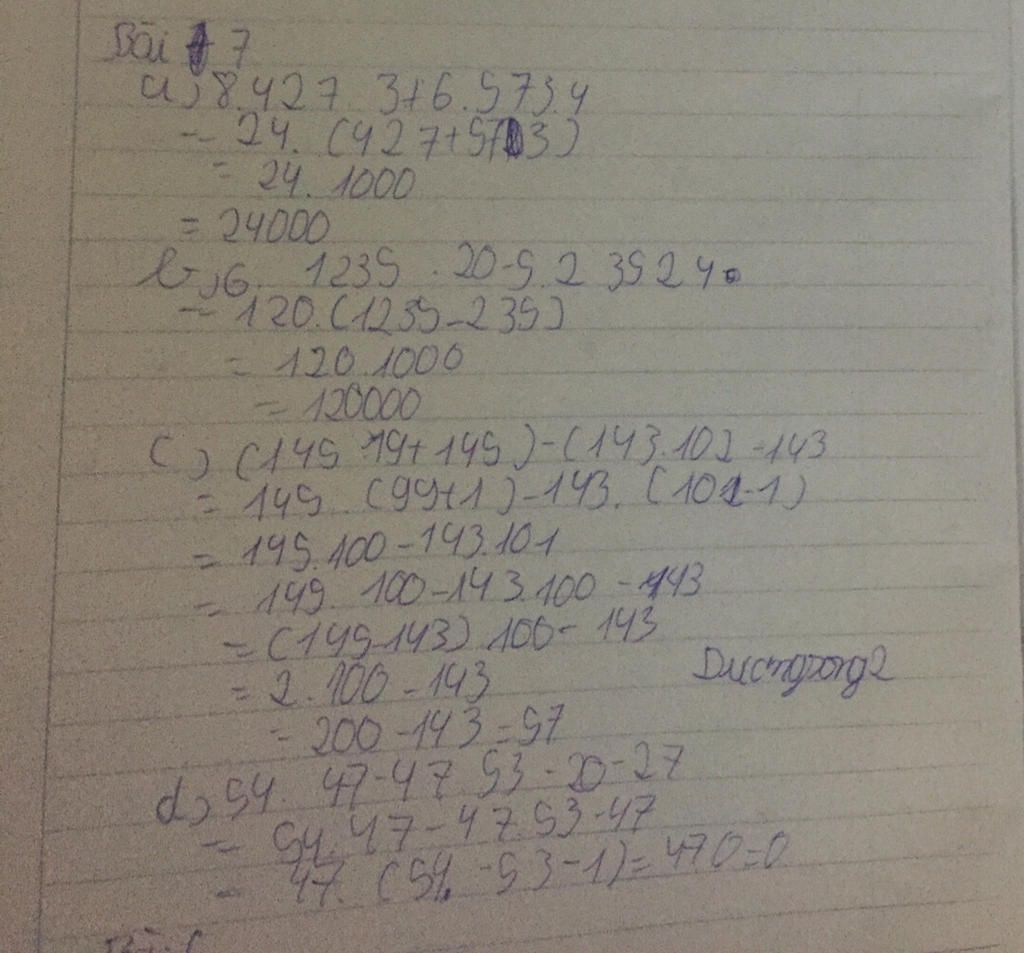 Bài 7
a, 8.427.3+6.573.4
= 24.(427+573)
= 24.1000
= 24000
b, 6.1235.20-5.235 24.
= 120.(1235-235)
= 120.1000
= 120000
c, (145 99+145)-(143.102-143
= 145.(99+1)-143.(102-1)
= 145.100-143.101
= 145.100-143.100-143
= (145-143).100-143
= 2.100-143
Duongpong2
= 200-143=57
d, 54.47-47 53-20-27
= 54.47-47.53-47
= 47.(54-53-1)=47 0=0